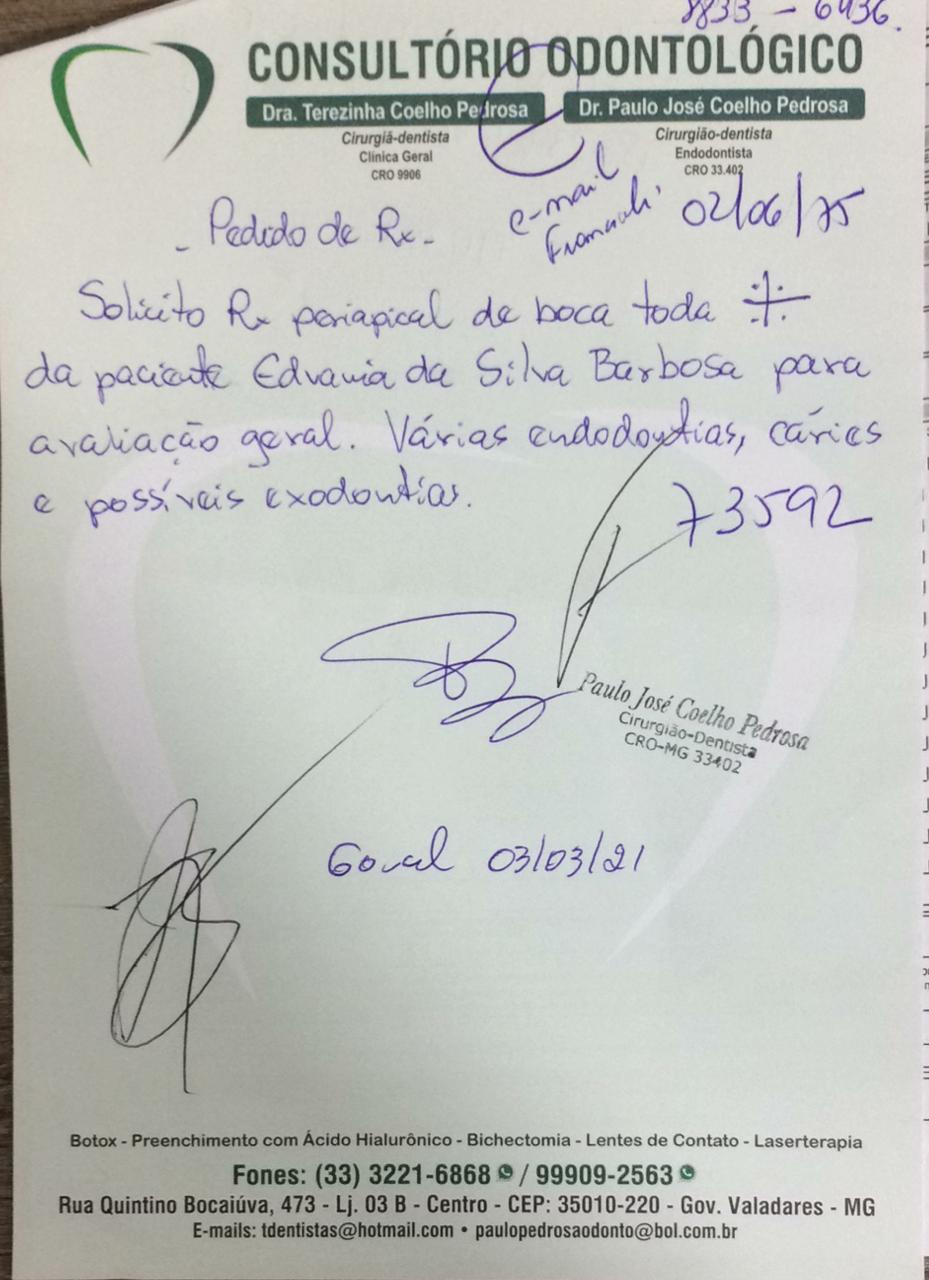 8833 - 6436
CONSULTÓRIO ODONTOLÓGICO
Dra. Terezinha Coelho Pedrosa
Cirurgiã-dentista
Clínica Geral
CRO 9906
Dr. Paulo José Coelho Pedrosa
Cirurgião-dentista
Endodontista
CRO 33.402
e-mail
02/06/75
- Pedido de Rx -
Solicito Rx periapical de boca toda
da paciente Edvania da Silva Barbosa para
avaliação geral. Várias endodontias, cáries
e possíveis exodontias.
73592
Paulo José Coelho Pedrosa
Cirurgião-Dentista
CRO-MG 33402
03/03/21
Botox - Preenchimento com Ácido Hialurônico - Bichectomia - Lentes de Contato - Laserterapia
Fones: (33) 3221-6868 / 99909-2563
Rua Quintino Bocaiúva, 473 - Lj. 03 B - Centro - CEP: 35010-220 - Gov. Valadares - MG
E-mails: tdentistas@hotmail.com • paulopedrosaodonto@bol.com.br